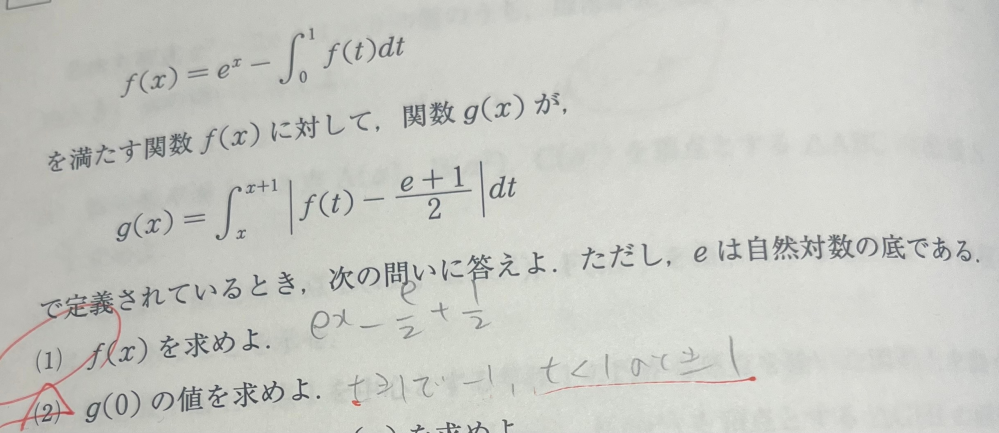 f(x) = e^x − ∫_0^1 f(t)dt
を満たす関数 f(x) に対して，関数 g(x) が，
g(x) = ∫_x^{x+1} | f(t) − (e+1)/2 | dt
で定義されているとき，次の問いに答えよ．ただし，e は自然対数の底である．
(1) f(x) を求めよ． ex − e/2 + 1/2
(2) g(0) の値を求めよ． t≧1で−1, t<1のとき1
を求めよ